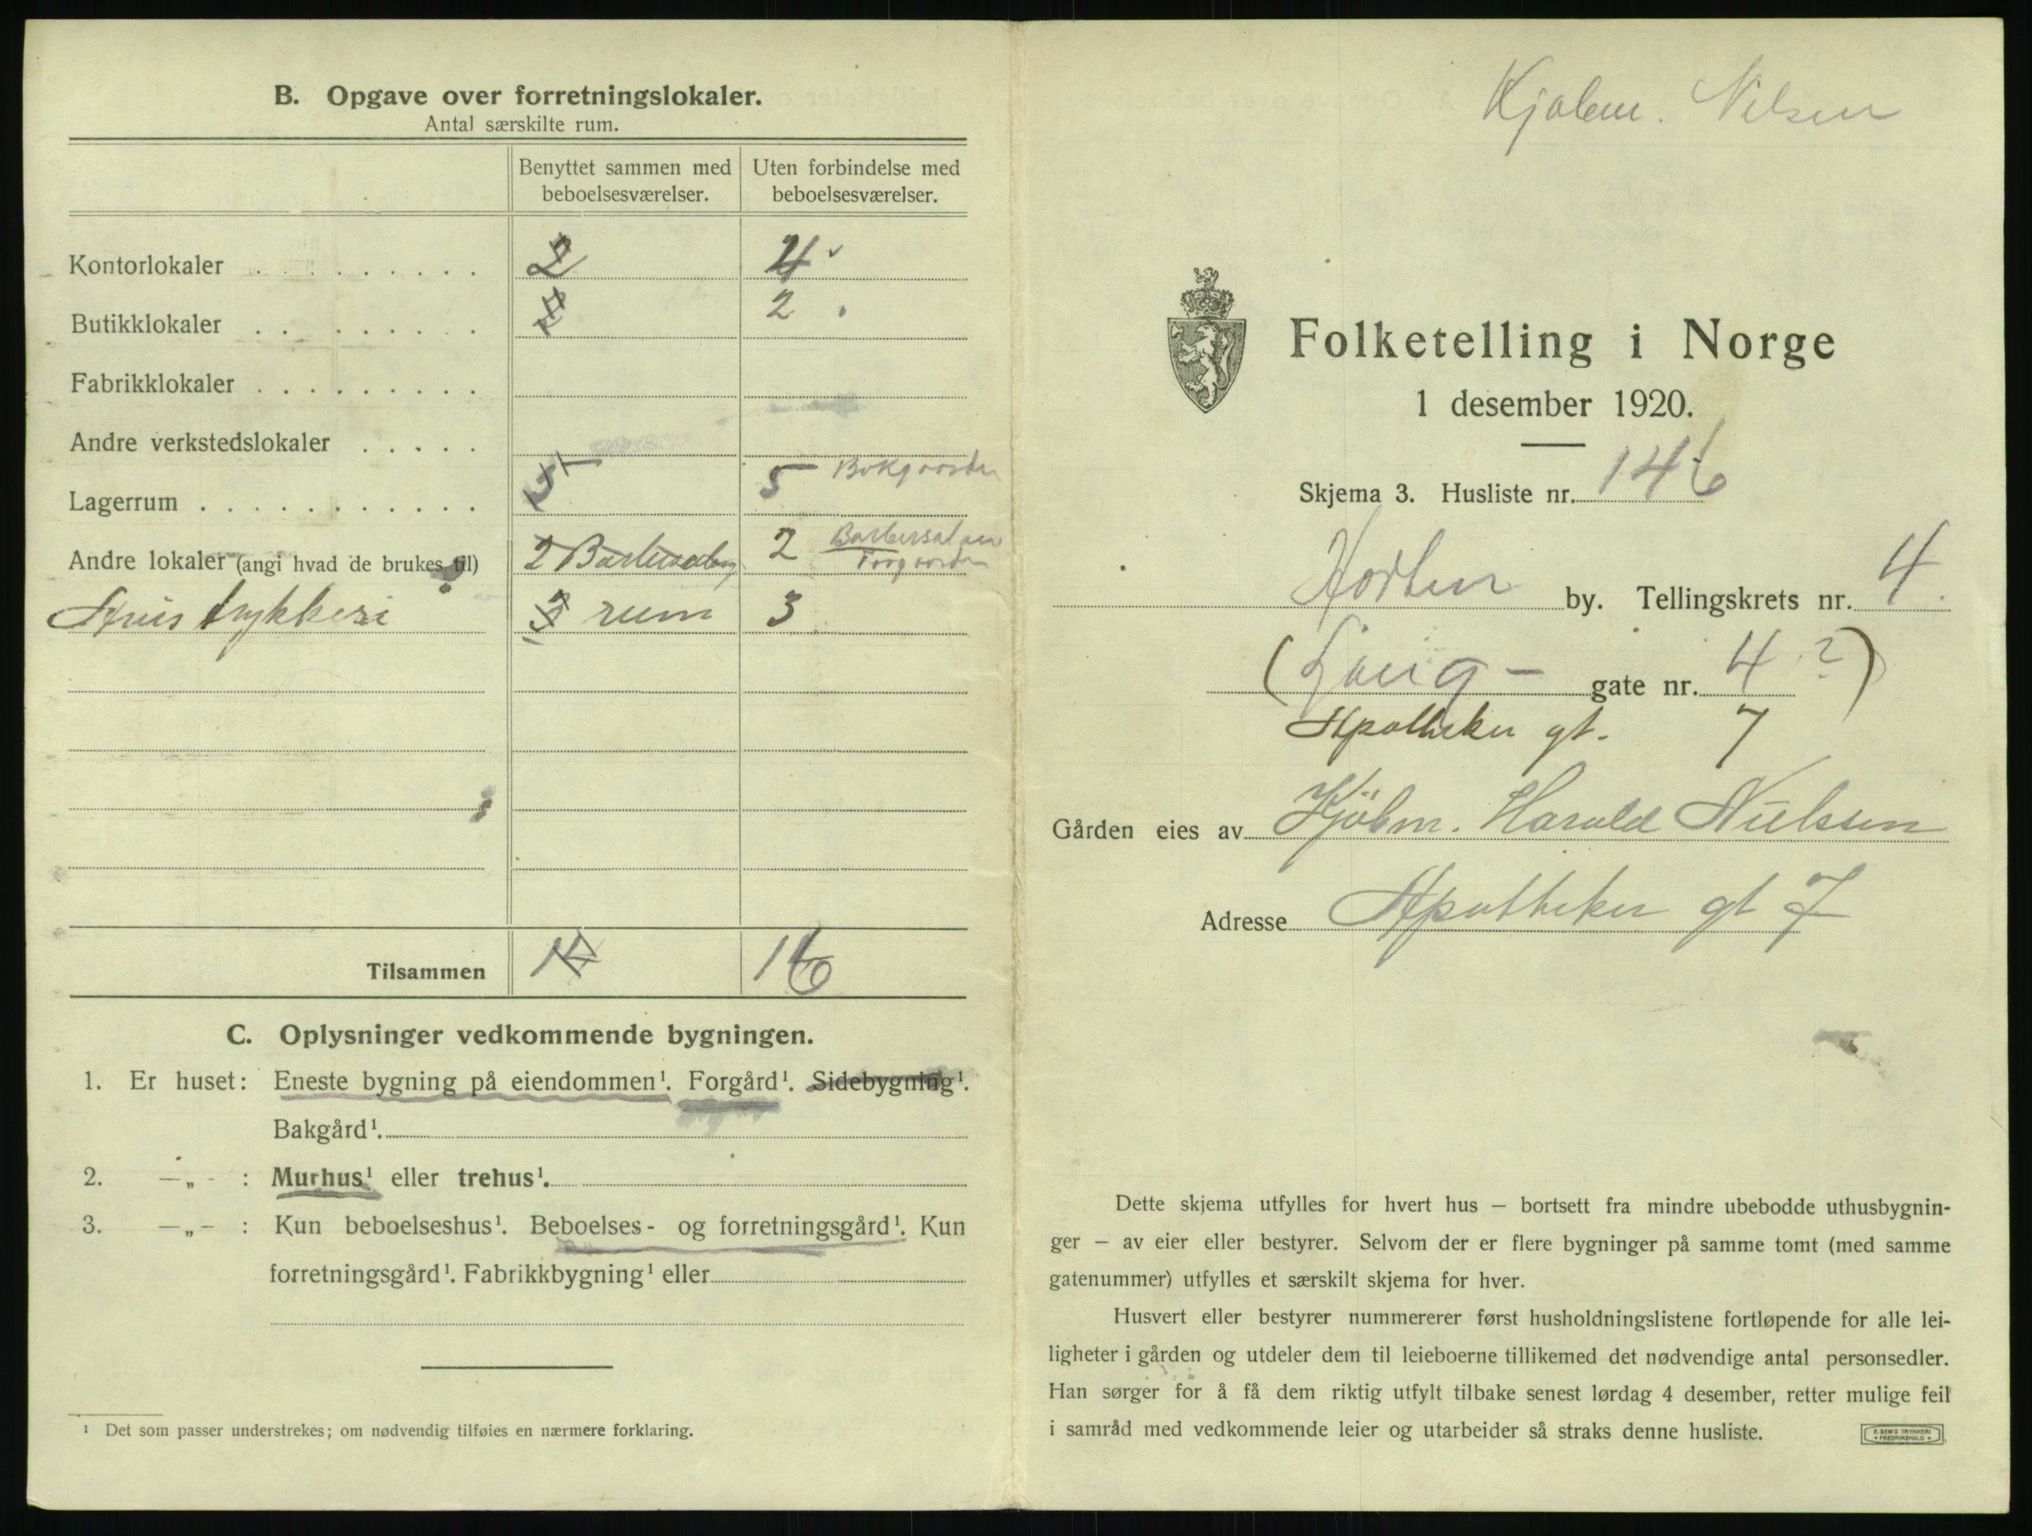 B. Opgave over forretningslokaler.
Antal særskilte rum.
Benyttet sammen med beboelsesværelser.
Uten forbindelse med beboelsesværelser.
Kontorlokaler . . . . . . . . . 2 4
Butikklokaler . . . . . . . . 2
Fabrikklokaler . . . . . . . . .
Andre verkstedslokaler . . . . .
Lagerrum . . . . . . . . . . . . 5 5 Bakgaarden
Andre lokaler (angi hvad de brukes til) 2 Barbersalong 2 Barbersalon
Forgaarden
Avis trykkeri 3 rum 3
Tilsammen 16
C. Oplysninger vedkommende bygningen.
1. Er huset: Eneste bygning på eiendommen¹. Forgård¹. Sidebygning¹.
Bakgård¹.
2. —„- : Murhus¹ eller trehus¹.
3. —„- : Kun beboelseshus¹. Beboelses- og forretningsgård¹. Kun
forretningsgård¹. Fabrikkbygning¹ eller
¹ Det som passer understrekes; om nødvendig tilføies en nærmere forklaring.
Kjøbm. Nilsen
Folketelling i Norge
1 desember 1920.
Skjema 3. Husliste nr. 146
Horten by. Tellingskrets nr. 4.
( Langgate nr. 4 ? )
Apotheker gt. 7
Gården eies av Kjöbm. Harald Nielsen
Adresse Apotheker gt 7
Dette skjema utfylles for hvert hus — bortsett fra mindre ubebodde uthusbygnin-
ger — av eier eller bestyrer. Selvom der er flere bygninger på samme tomt (med samme
gatenummer) utfylles et særskilt skjema for hver.
Husvert eller bestyrer nummererer først husholdningslistene fortløpende for alle lei-
ligheter i gården og utdeler dem til leieboerne tillikemed det nødvendige antal personsedler.
Han sørger for å få dem riktig utfylt tilbake senest lørdag 4 desember, retter mulige feil
i samråd med vedkommende leier og utarbeider så straks denne husliste.
E. SEM'S TRYKKERI
FREDRIKSHALD